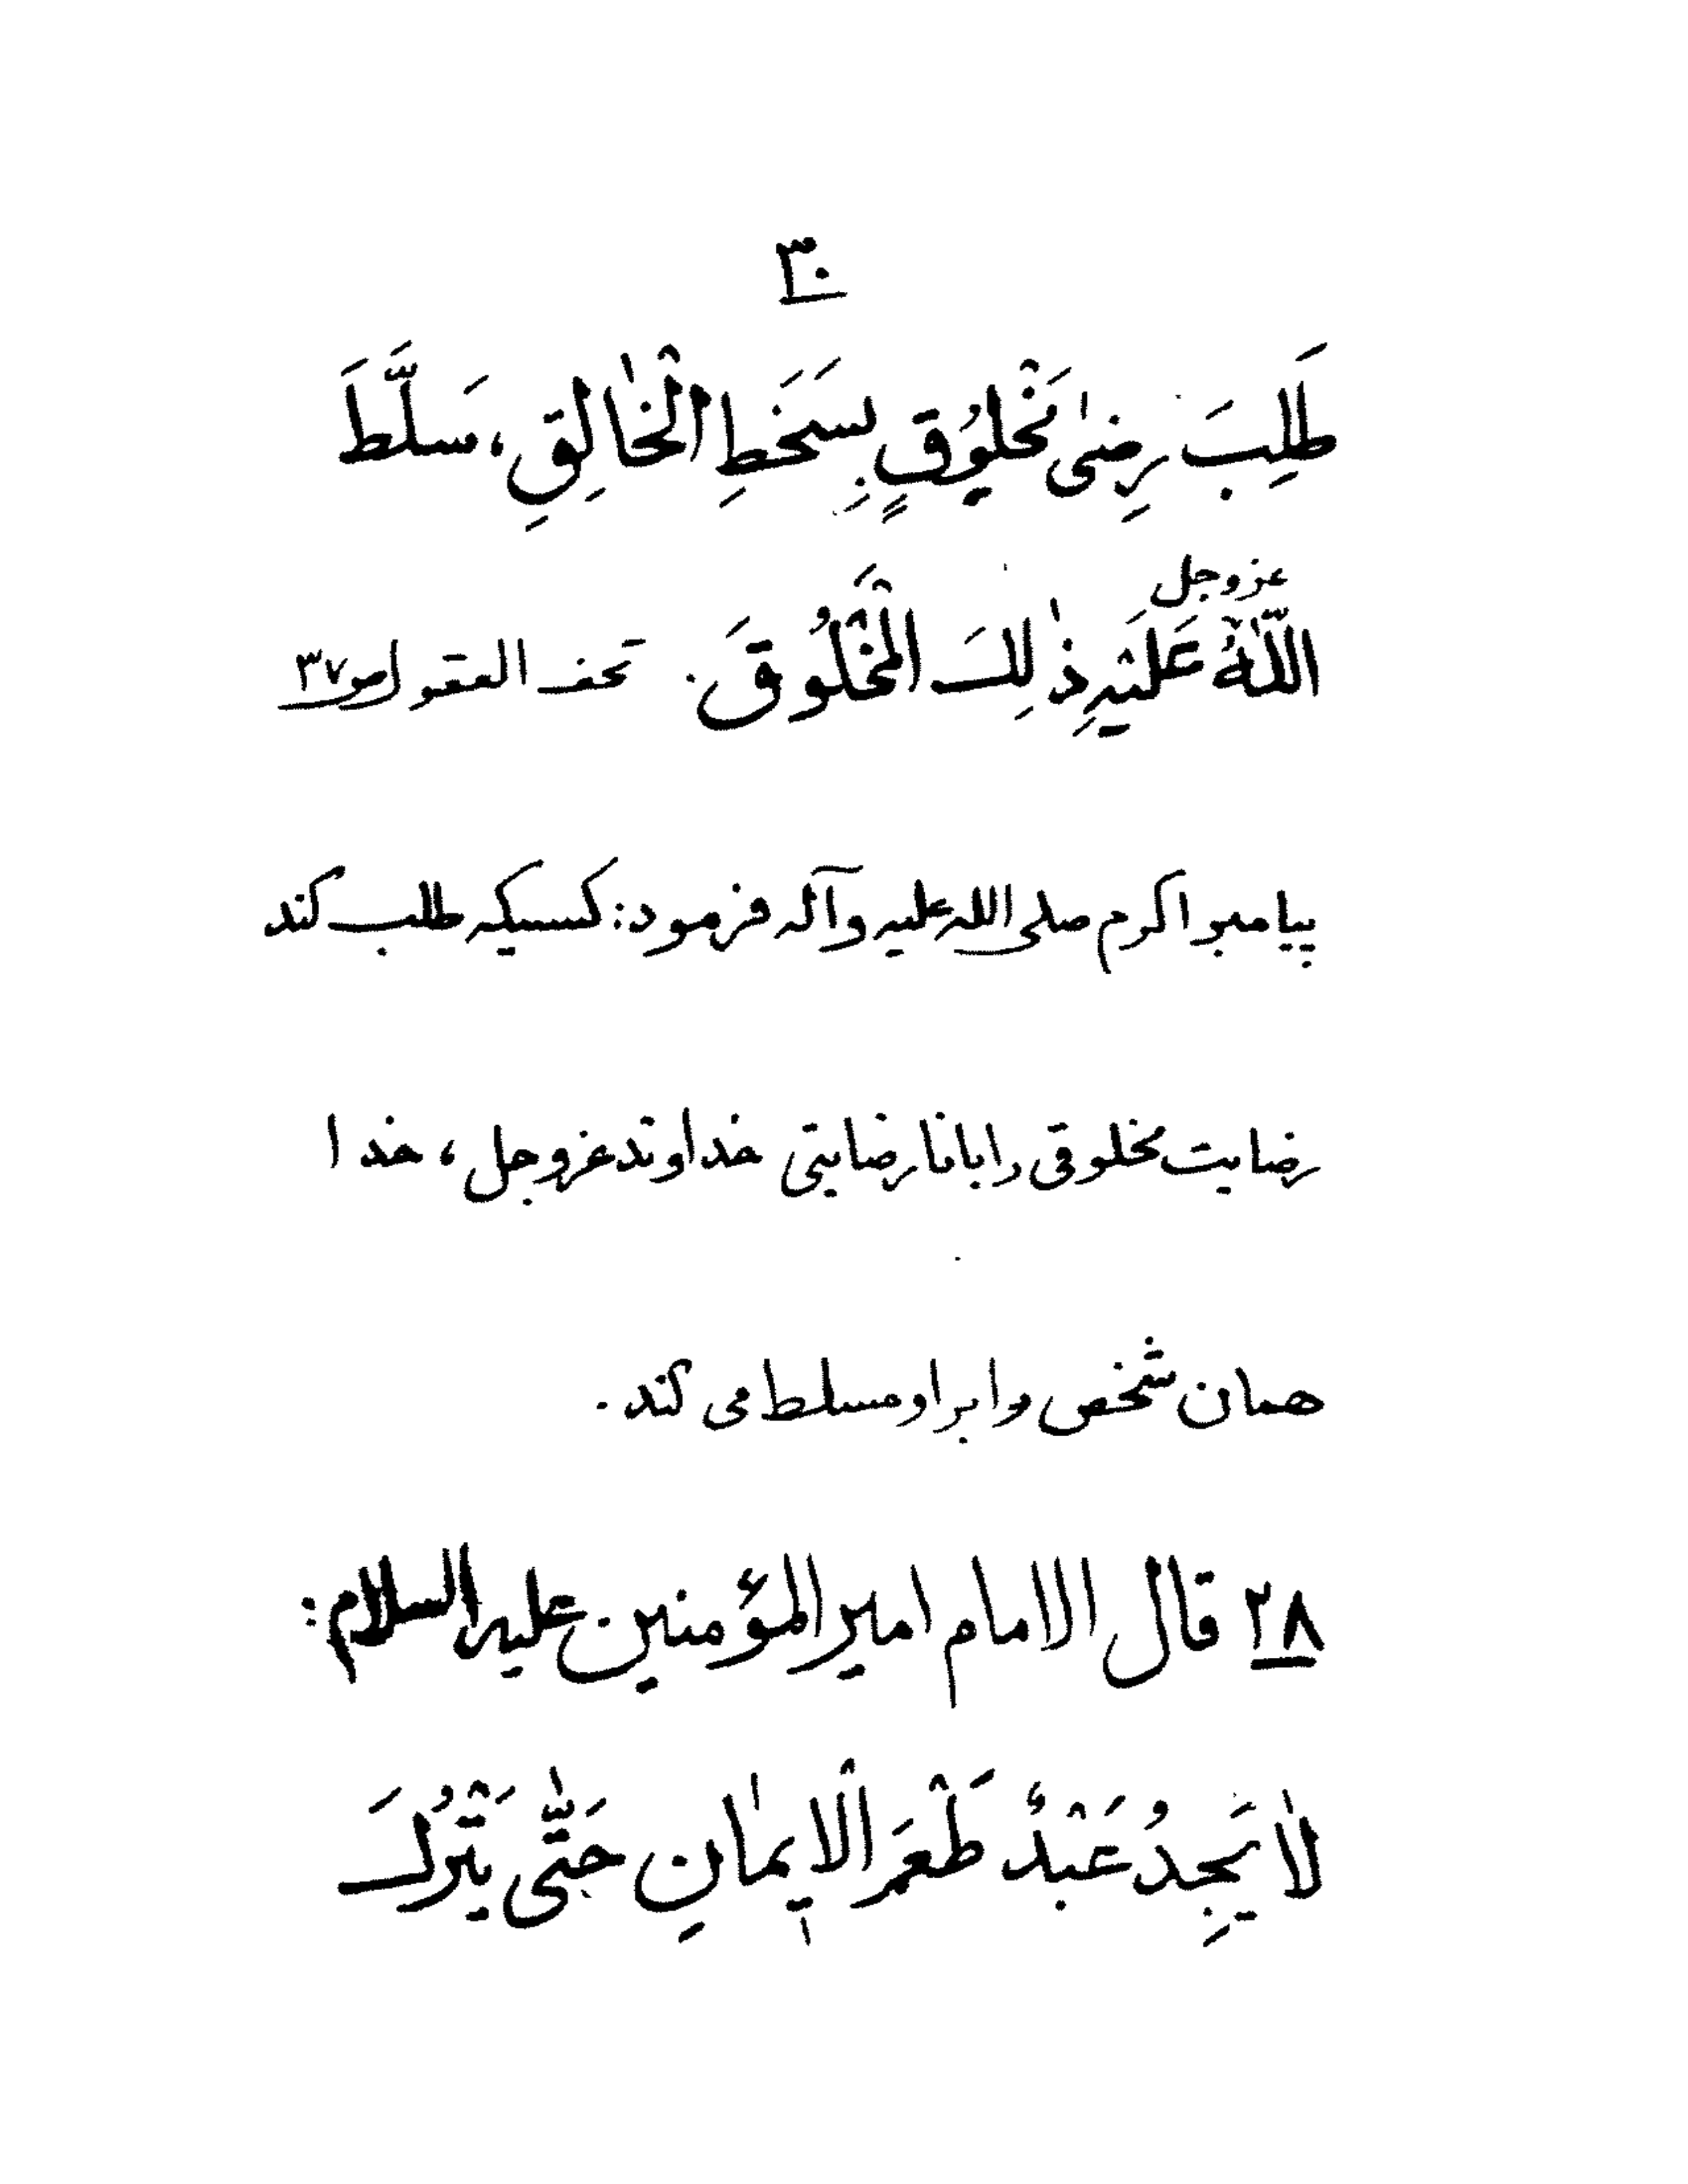 ۳۰
طَلِبَ رِضیٰ مَخْلُوُقٍ بِسَخَطِ الْخٰالِقِ، سَلَّطَ
عزوجل
اللّٰهُ عَلَیْهِ ذٰلِكَ الْمَخْلُوقَ. تحف العقول ص۳۷
پیامبر اکرم صلی الله علیه وآله فرمود: کسیکه طلب کند
رضایت مخلوقی را با نارضایتی خداوند عزوجل، خدا
همان شخص را بر او مسلط می کند.
۲۸ قال الامام امیر المؤمنین علیه السلام:
لاٰ یَجِدُ عَبْدٌ طَعْمَ الْاِیمٰانِ حَتّٰی یَتْرُكَ